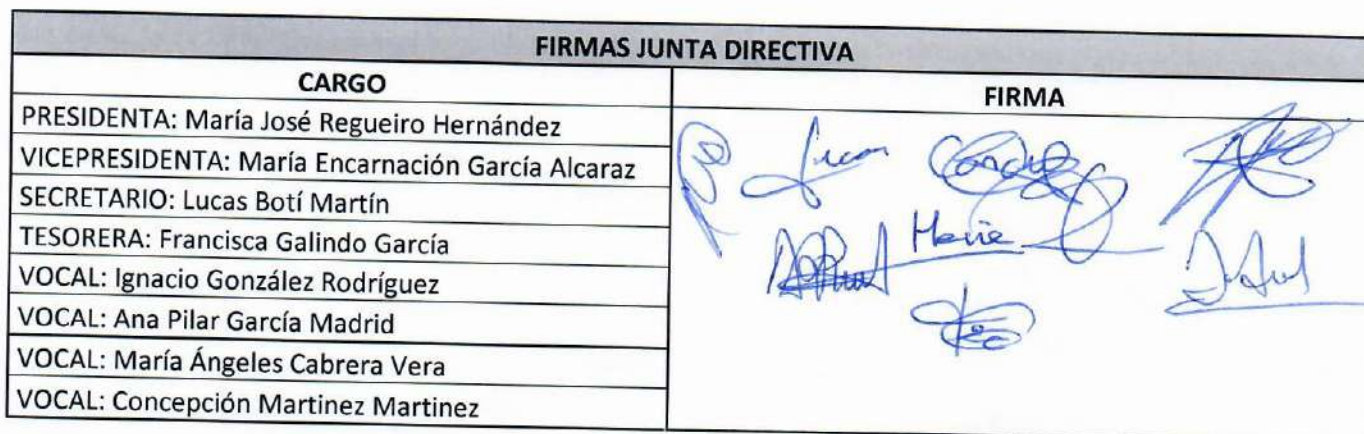 FIRMAS JUNTA DIRECTIVA
CARGO
FIRMA
PRESIDENTA: María José Regueiro Hernández
VICEPRESIDENTA: María Encarnación García Alcaraz
SECRETARIO: Lucas Botí Martín
TESORERA: Francisca Galindo García
VOCAL: Ignacio González Rodríguez
VOCAL: Ana Pilar García Madrid
VOCAL: María Ángeles Cabrera Vera
VOCAL: Concepción Martinez Martinez